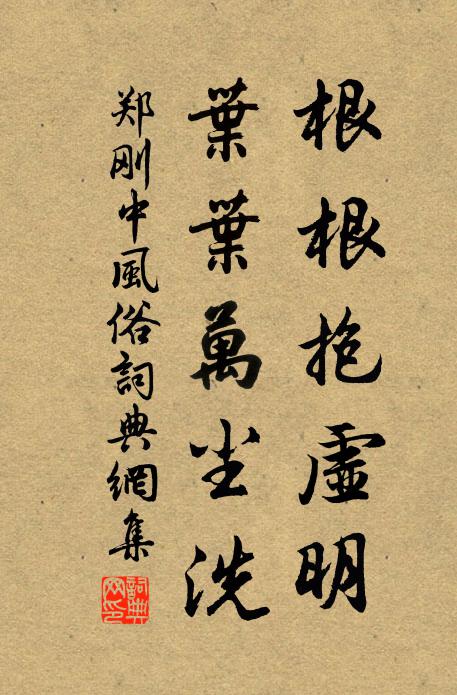 根根抱虛明
葉葉萬尘洗
郑刚中風俗詞典網集
詞典網印